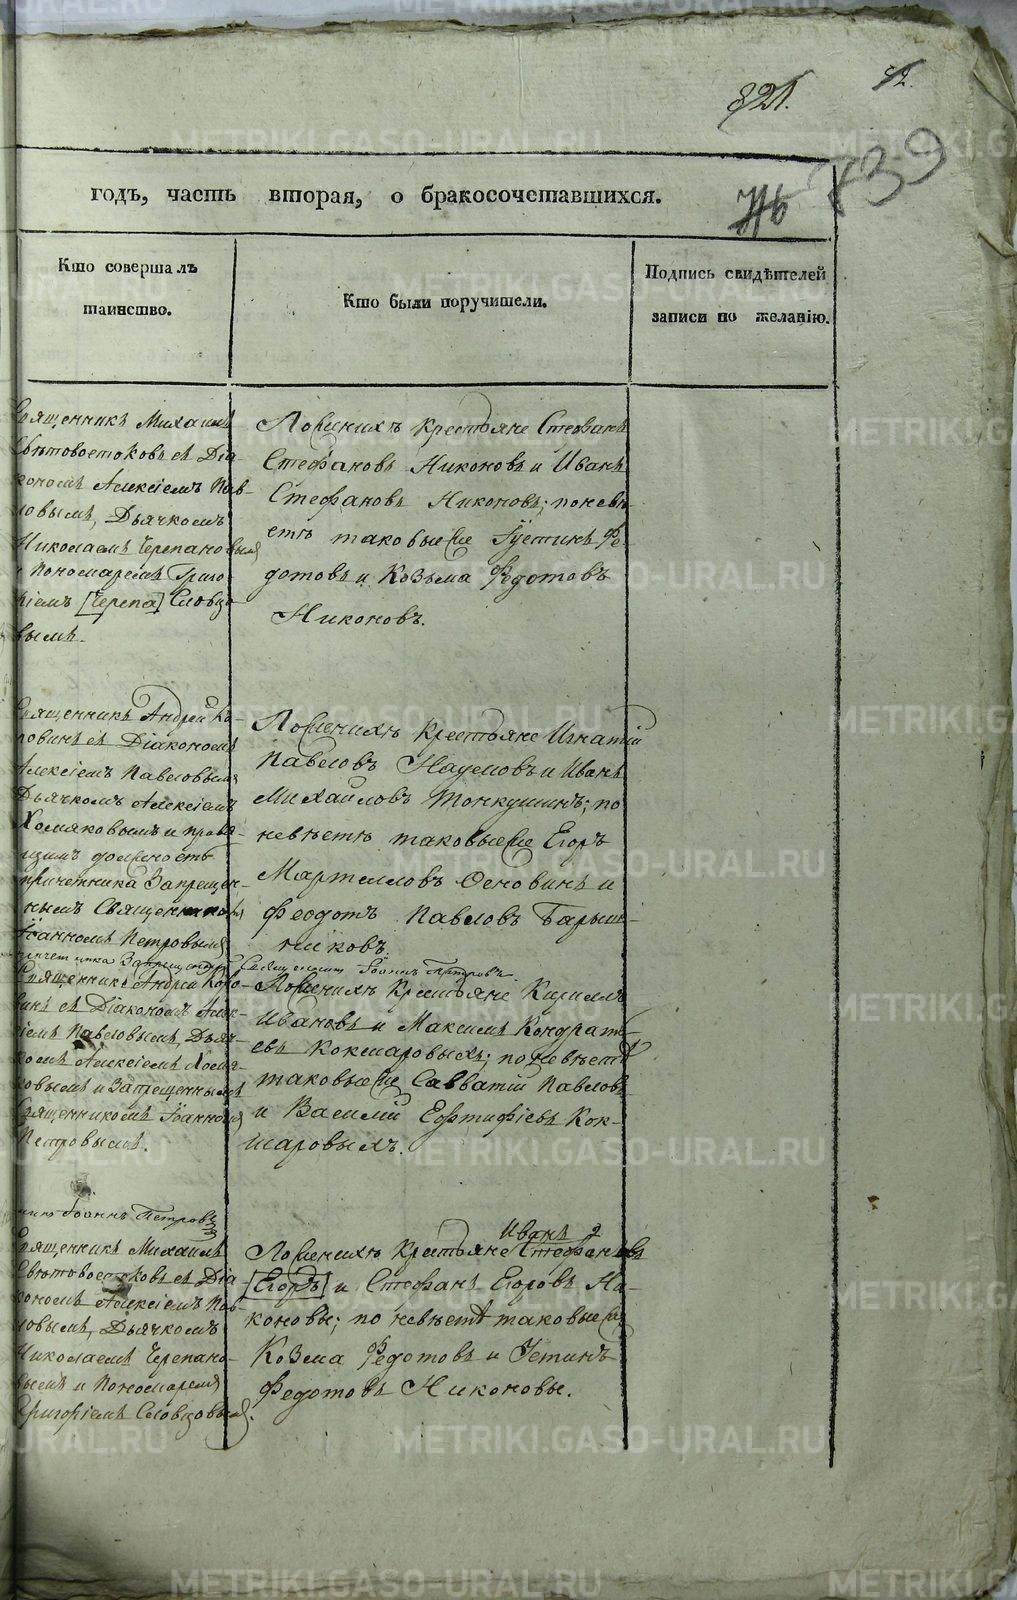 821.
52.
839
годъ, часть вторая, о бракосочетавшихся.
Кто совершалъ
таинство.
Кто были поручители.
Подпись свидѣтелей
записи по желанію.
Священникъ Михаилъ
Свѣтовостоковъ съ Діа-
кономъ Алексіемъ Пав-
ловымъ, Дьячкомъ
Николаемъ Черепановымъ
и Пономаремъ Григо-
ріемъ [Черепа] Словцо-
вымъ.
По женихѣ крестьяне Стефанъ
Стефановъ Никоновъ и Иванъ
Стефановъ Никоновъ; по невѣ
стѣ таковые же Іустинъ Ѳе-
дотовъ и Козьма Ѳедотовъ
Никоновъ.
Священникъ Андрей Ко-
ровинъ съ Діакономъ
Алексіемъ Павловымъ
Дьячкомъ Алексіемъ
Хомяковымъ и правя-
щимъ должность
причетника Запрещен-
нымъ Священникомъ
Іоанномъ Петровымъ
По женихѣ крестьяне Игнатій
Павловъ Наумовъ и Иванъ
Михайловъ Тонкушинъ; по
невѣстѣ таковые же Егоръ
Мартемловъ Осковинъ и
Феодотъ Павловъ Барыш-
никовъ.
причетника Запрещенный Священникъ Іоаннъ Петровъ
Священникъ Андрей Коро-
винъ съ Діакономъ Алек-
сіемъ Павловымъ, Дьяч-
комъ Алексіемъ Хомя-
ковымъ и Запрещеннымъ
Священникомъ Іоанномъ
Петровымъ.
По женихѣ Крестьяне Кириллъ
Ивановъ и Максимъ Кондрать-
евъ Кокшаровыхъ; по невѣстѣ
таковые же Савватій Павловъ
и Василій Евтифіевъ Кок-
шаровыхъ.
никъ Іоаннъ Петровъ
Священникъ Михаилъ
Свѣтовостоковъ съ Діа
кономъ Алексіемъ Пав-
ловымъ, Дьячкомъ
Николаемъ Черепано-
вымъ и Пономаремъ
Григоріемъ Словцовымъ.
Иванъ 2
По женихѣ крестьяне Стефановъ
[Егоръ] и Стефанъ Егоровъ Ни-
коновы; по невѣстѣ таковые же
Козма Ѳедотовъ и Устинъ
Федотовъ Никоновы.
METRIKI.GASO-URAL.RU